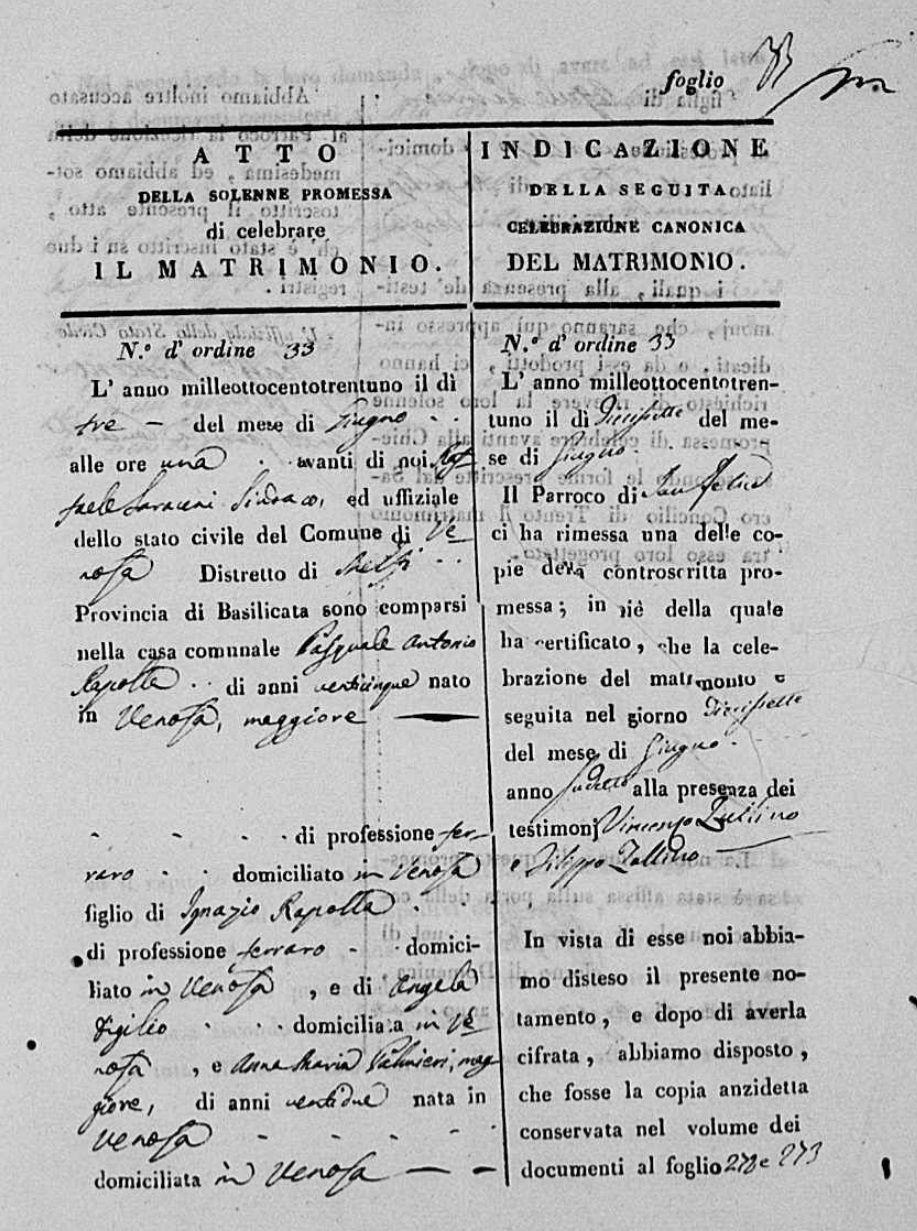 foglio 33
ATTO
DELLA SOLENNE PROMESSA
di celebrare
IL MATRIMONIO.
N.° d' ordine 33
L' anno milleottocentotrentuno il dì
tre — del mese di Giugno
alle ore una avanti di noi Raf-
faele Saraceni Sindaco, ed uffiziale
dello stato civile del Comune di Ve-
nosa Distretto di Melfi
Provincia di Basilicata sono comparsi
nella casa comunale Pasquale Antonio
Rapolla di anni venticinque nato
in Venosa, maggiore —
di professione fer-
raro domiciliato in Venosa
figlio di Ignazio Rapolla
di professione ferraro domici-
liato in Venosa, e di Angela
Vigilio domiciliata in Ve-
nosa, e Anna Maria Palmieri, mag-
giore, di anni ventidue nata in
Venosa
domiciliata in Venosa — —
INDICAZIONE
DELLA SEGUITA
CELEBRAZIONE CANONICA
DEL MATRIMONIO.
N.° d' ordine 33
L' anno milleottocentotren-
tuno il dì Diecisette del me-
se di Giugno
Il Parroco di
ci ha rimessa una delle co-
pie della controscritta pro-
messa; in piè della quale
ha certificato, che la cele-
brazione del matrimonio è
seguita nel giorno Diecisette
del mese di Giugno
anno sudetto alla presenza dei
testimonj Vincenzo
e Filippo
In vista di esse noi abbia-
mo disteso il presente no-
tamento, e dopo di averla
cifrata, abbiamo disposto,
che fosse la copia anzidetta
conservata nel volume dei
documenti al foglio 272 e 273